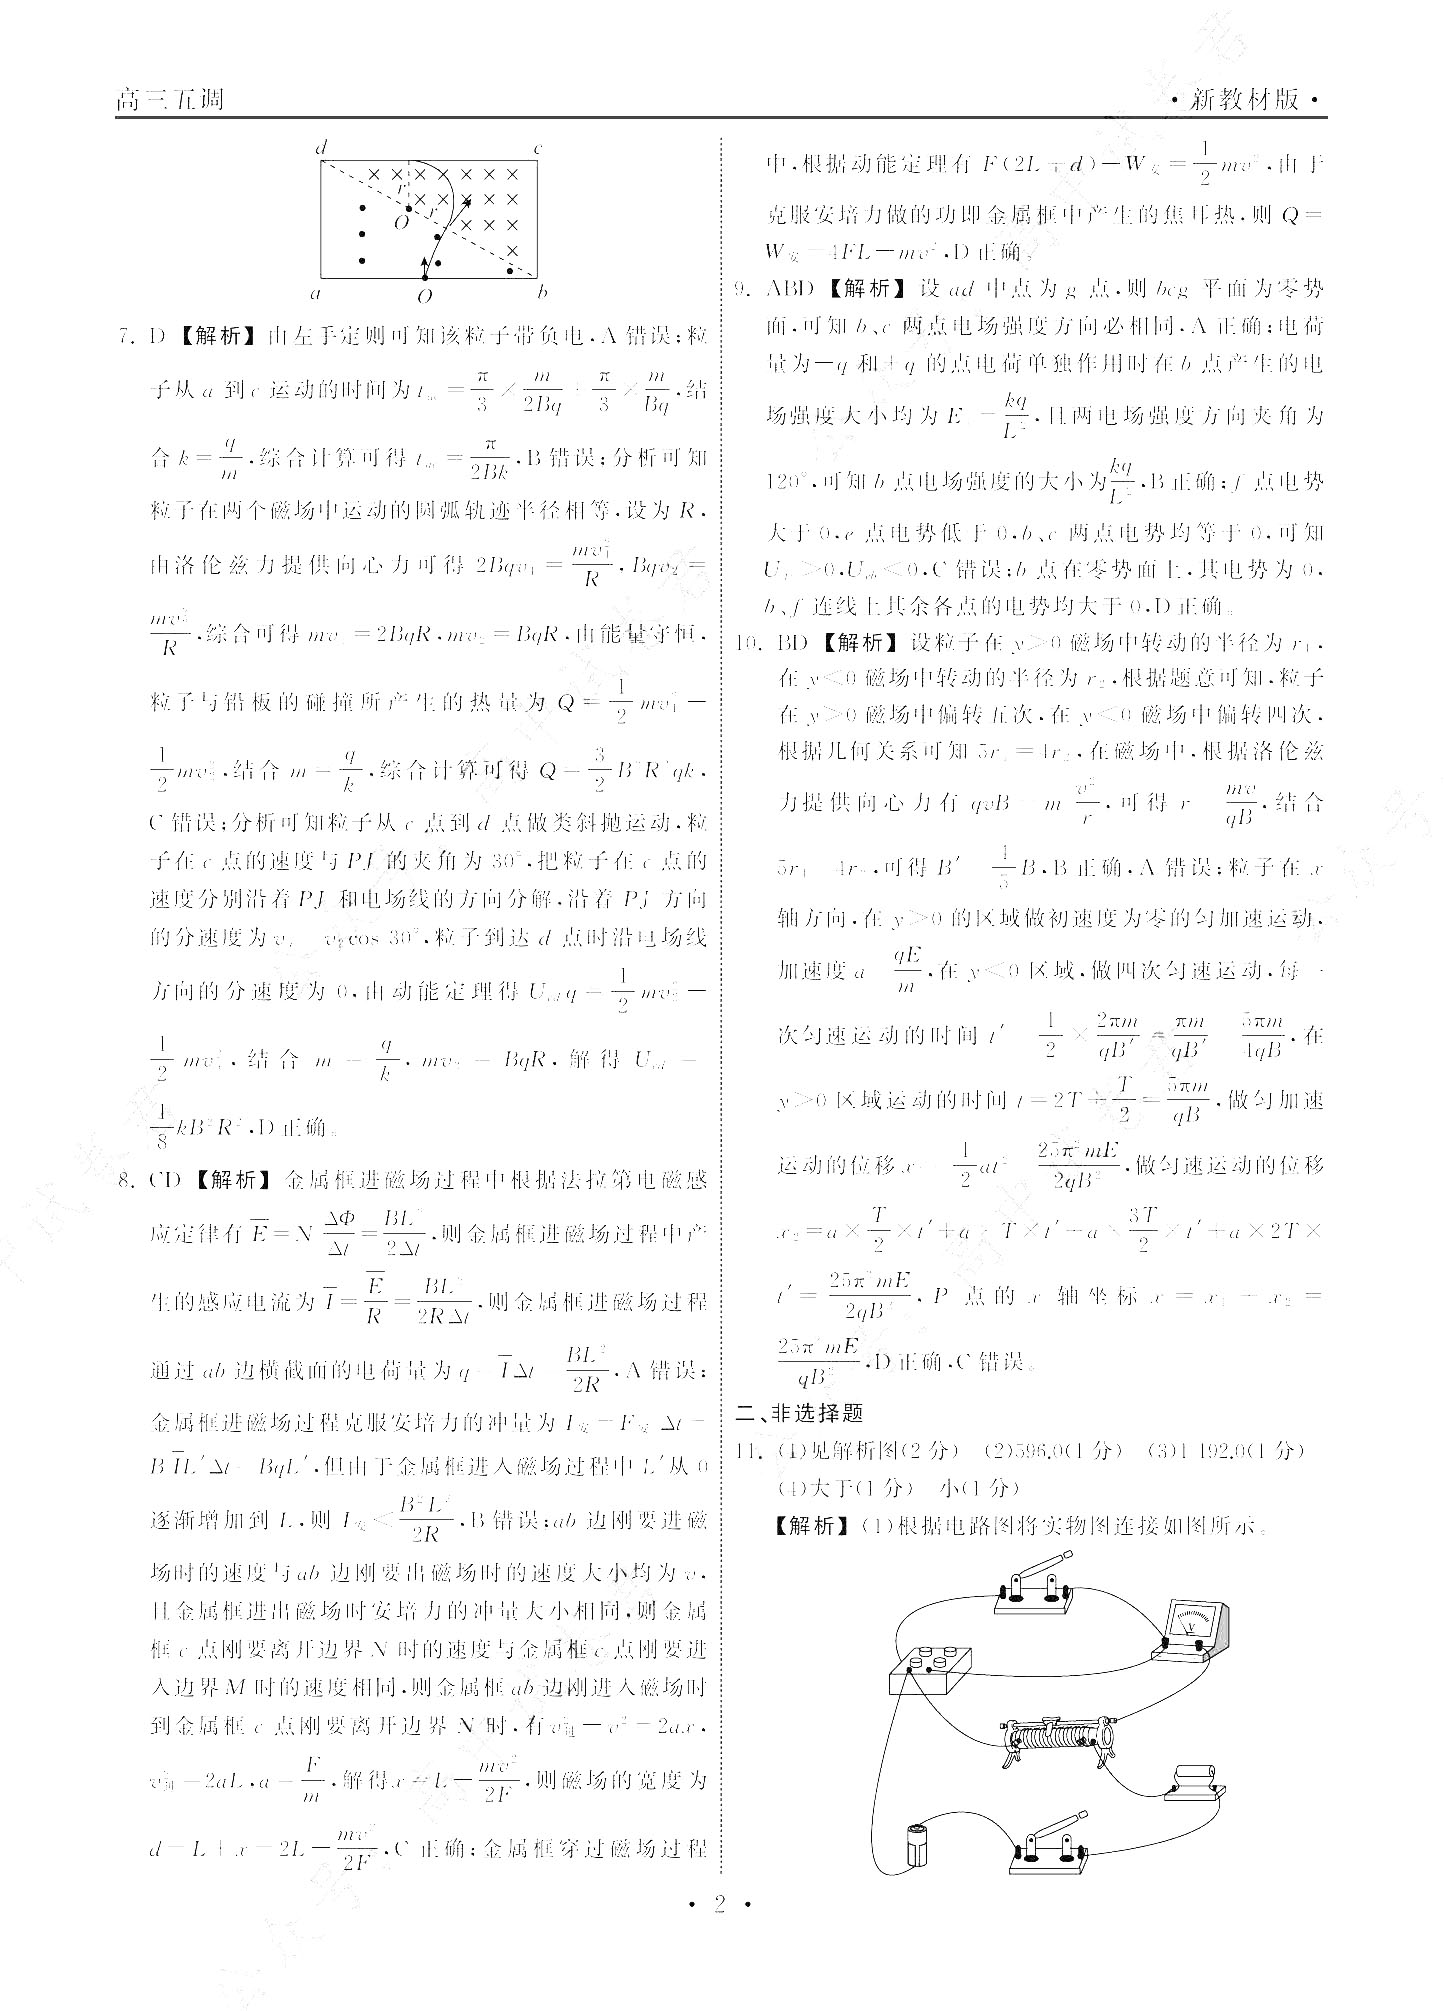 高三五调
·新教材版·
d c
r
O r
a O b
7. D 【解析】由左手定则可知该粒子带负电,A 错误;粒
子从 a 到 c 运动的时间为 t = π/3 × m/2Bq + π/3 × m/Bq,结
合 k = q/m,综合计算可得 t = π/2Bk,B 错误;分析可知
粒子在两个磁场中运动的圆弧轨迹半径相等,设为 R,
由洛伦兹力提供向心力可得 2Bqv₁ = mv₁²/R,Bqv₂ =
mv₂²/R,综合可得 mv₁ = 2BqR,mv₂ = BqR,由能量守恒,
粒子与铅板的碰撞所产生的热量为 Q = 1/2 mv₁² −
1/2 mv₂²,结合 m = q/k,综合计算可得 Q = 3/2 B²R²qk,
C 错误;分析可知粒子从 c 点到 d 点做类斜抛运动,粒
子在 c 点的速度与 PJ 的夹角为 30°,把粒子在 c 点的
速度分别沿着 PJ 和电场线的方向分解,沿着 PJ 方向
的分速度为 v = v₂cos 30°,粒子到达 d 点时沿电场线
方向的分速度为 0,由动能定理得 U_cd q = 1/2 mv² −
1/2 mv²,结合 m = q/k,mv₂ = BqR,解得 U_cd =
1/8 kB²R²,D 正确。
8. CD 【解析】金属框进磁场过程中根据法拉第电磁感
应定律有 E̅ = N ΔΦ/Δt = BL²/2Δt,则金属框进磁场过程中产
生的感应电流为 I̅ = E̅/R = BL²/2RΔt,则金属框进磁场过程
通过 ab 边横截面的电荷量为 q = I̅Δt = BL²/2R,A 错误;
金属框进磁场过程克服安培力的冲量为 I安 = F安 Δt =
B I̅L′Δt = BqL′,但由于金属框进入磁场过程中 L′从 0
逐渐增加到 L,则 I安 < B²L³/2R,B 错误;ab 边刚要进磁
场时的速度与 ab 边刚要出磁场时的速度大小均为 v,
且金属框进出磁场时安培力的冲量大小相同,则金属
框 c 点刚要离开边界 N 时的速度与金属框 c 点刚要进
入边界 M 时的速度相同,则金属框 ab 边刚进入磁场时
到金属框 c 点刚要离开边界 N 时,有 v − v² = 2ax,
v = 2aL,a = F/m,解得 x = L − mv²/2F,则磁场的宽度为
d = L + x = 2L − mv²/2F,C 正确;金属框穿过磁场过程
中,根据动能定理有 F(2L + d) − W安 = 1/2 mv²,由于
克服安培力做的功即金属框中产生的焦耳热,则 Q =
W安 = 4FL − mv²,D 正确。
9. ABD 【解析】设 ad 中点为 g 点,则 bcg 平面为零势
面,可知 b、c 两点电场强度方向必相同,A 正确;电荷
量为 −q 和 +q 的点电荷单独作用时在 b 点产生的电
场强度大小均为 E = kq/L²,且两电场强度方向夹角为
120°,可知 b 点电场强度的大小为 kq/L²,B 正确;f 点电势
大于 0,e 点电势低于 0,b、c 两点电势均等于 0,可知
U >0,U <0,C 错误;b 点在零势面上,其电势为 0,
b、f 连线上其余各点的电势均大于 0,D 正确。
10. BD 【解析】设粒子在 y>0 磁场中转动的半径为 r₁,
在 y<0 磁场中转动的半径为 r₂,根据题意可知,粒子
在 y>0 磁场中偏转五次,在 y<0 磁场中偏转四次,
根据几何关系可知 5r₁ = 4r₂,在磁场中,根据洛伦兹
力提供向心力有 qvB = m v²/r,可得 r = mv/qB,结合
5r₁ = 4r₂,可得 B′ = 4/5 B,B 正确,A 错误;粒子在 x
轴方向,在 y>0 的区域做初速度为零的匀加速运动,
加速度 a = qE/m,在 y<0 区域,做四次匀速运动,每一
次匀速运动的时间 t′ = 1/2 × 2πm/qB′ = πm/qB′ = 5πm/4qB,在
y>0 区域运动的时间 t = 2T + T/2 = 5πm/qB,做匀加速
运动的位移 x₁ = 1/2 at² = 25π²mE/2qB²,做匀速运动的位移
x₂ = a × T/2 × t′ + a × T × t′ + a × 3T/2 × t′ + a × 2T ×
t′ = 25π²mE/2qB²,P 点的 x 轴坐标 x = x₁ + x₂ =
25π²mE/qB²,D 正确,C 错误。
二、非选择题
11. (1)见解析图(2 分) (2)596.0(1 分) (3)1 192.0(1 分)
(4)大于(1 分) 小(1 分)
【解析】(1)根据电路图将实物图连接如图所示。
V
· 2 ·